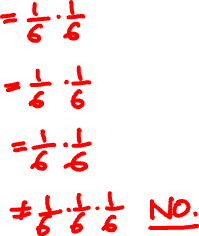 = 1/6 · 1/6
= 1/6 · 1/6
= 1/6 · 1/6
≠ 1/6 · 1/6 · 1/6 NO.